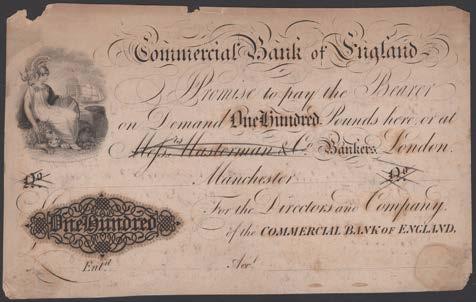 Commercial Bank of England
I Promise to pay the Bearer
on Demand One Hundred Pounds here, or at
Mess.rs Masterman & Co. Bankers London.
No No
Manchester
For the Directors and Company,
of the COMMERCIAL BANK OF ENGLAND.
One Hundred
£
Ent.d Acc.t